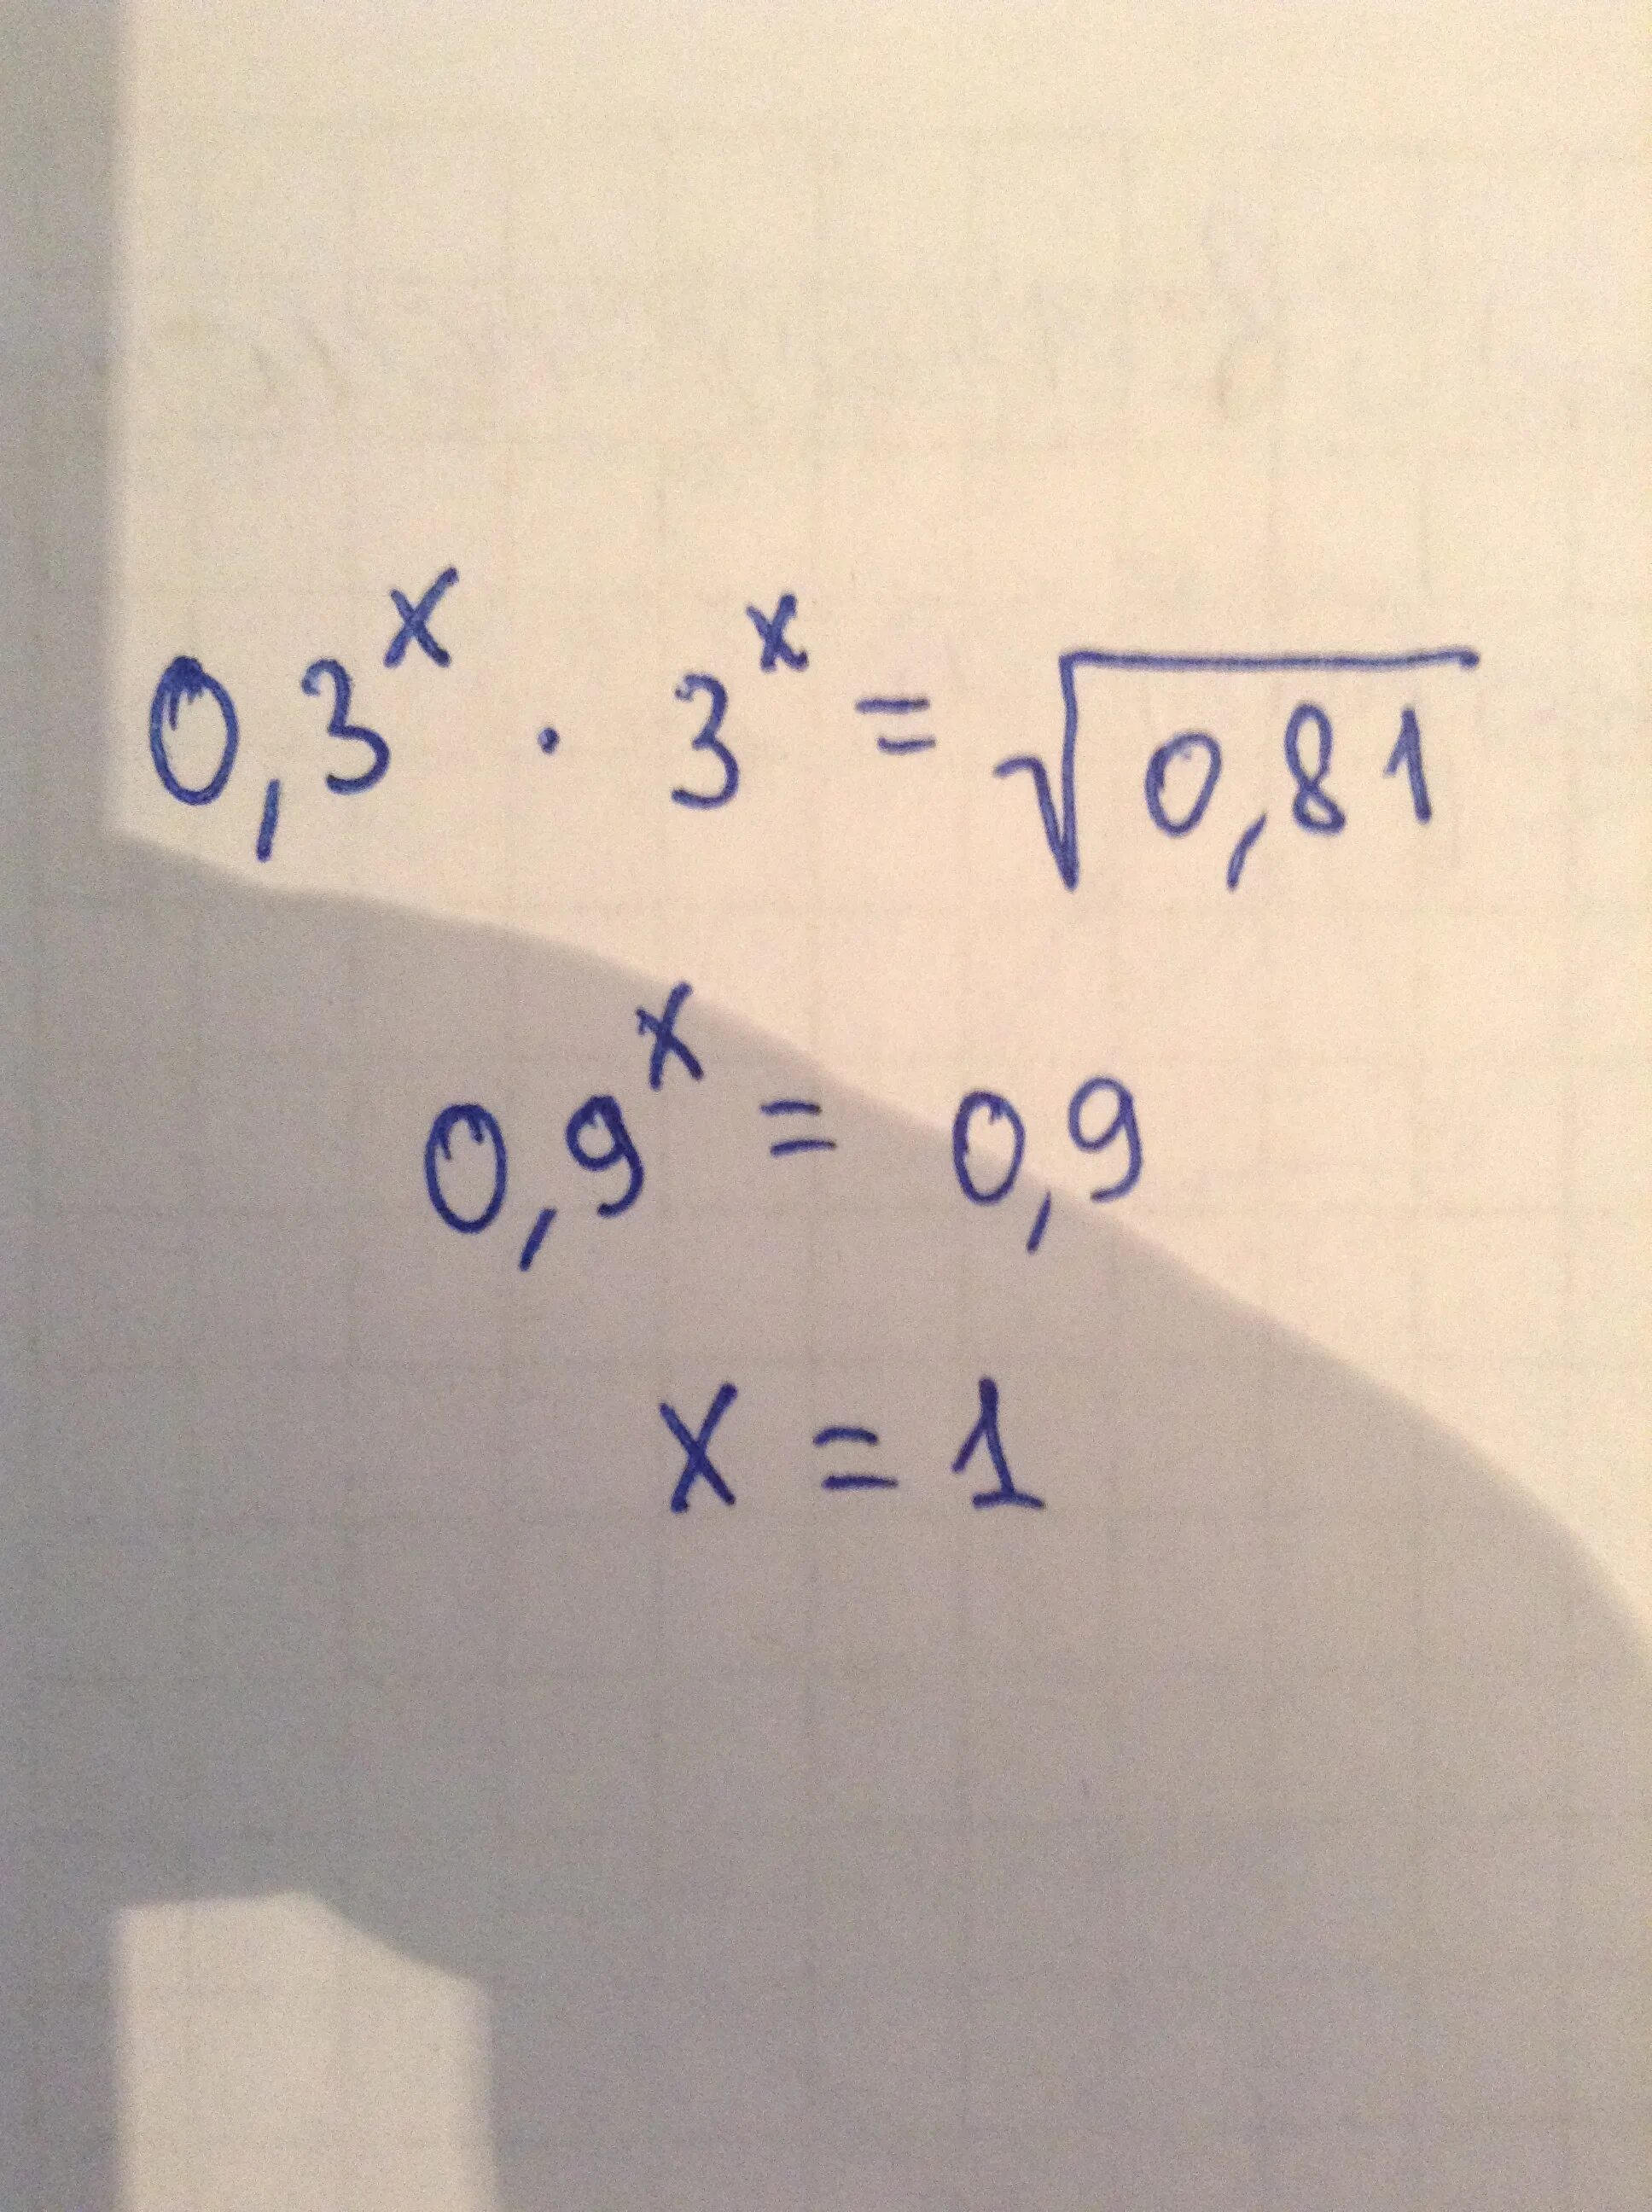 0,3ˣ · 3ˣ = √0,81
0,9ˣ = 0,9
x = 1